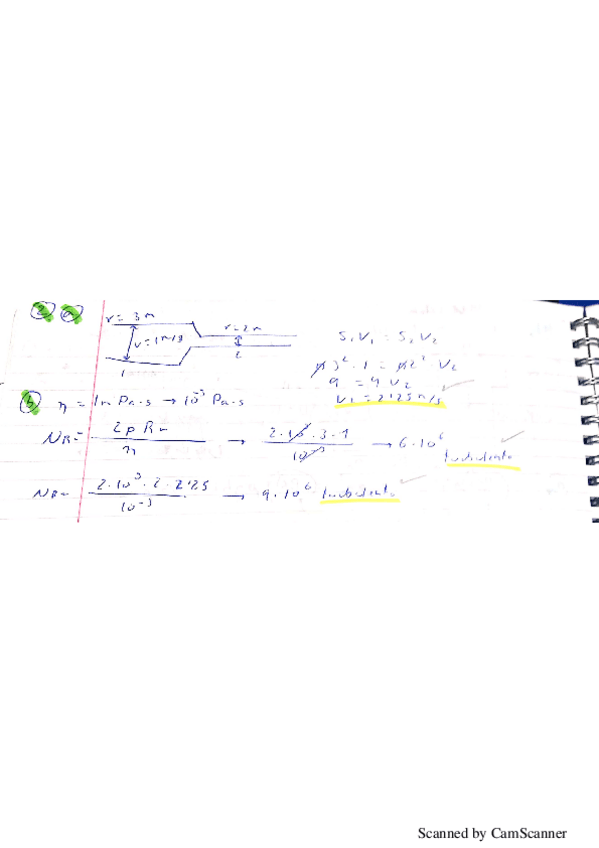 2 a r = 3 m
r = 2 m
v = 1 m/s
1 2
S₁V₁ = S₂V₂
π3² · 1 = π2² V₂
9 = 4 V₂
V₂ = 2'25 m/s
b η = 1m Pa·s → 10⁻³ Pa·s
NR = 2ρRv / η → 2·10³·3·1 / 10⁻³ → 6·10⁶
turbulento
NR = 2·10³·2·2'25 / 10⁻³ → 9·10⁶ turbulento
Scanned by CamScanner